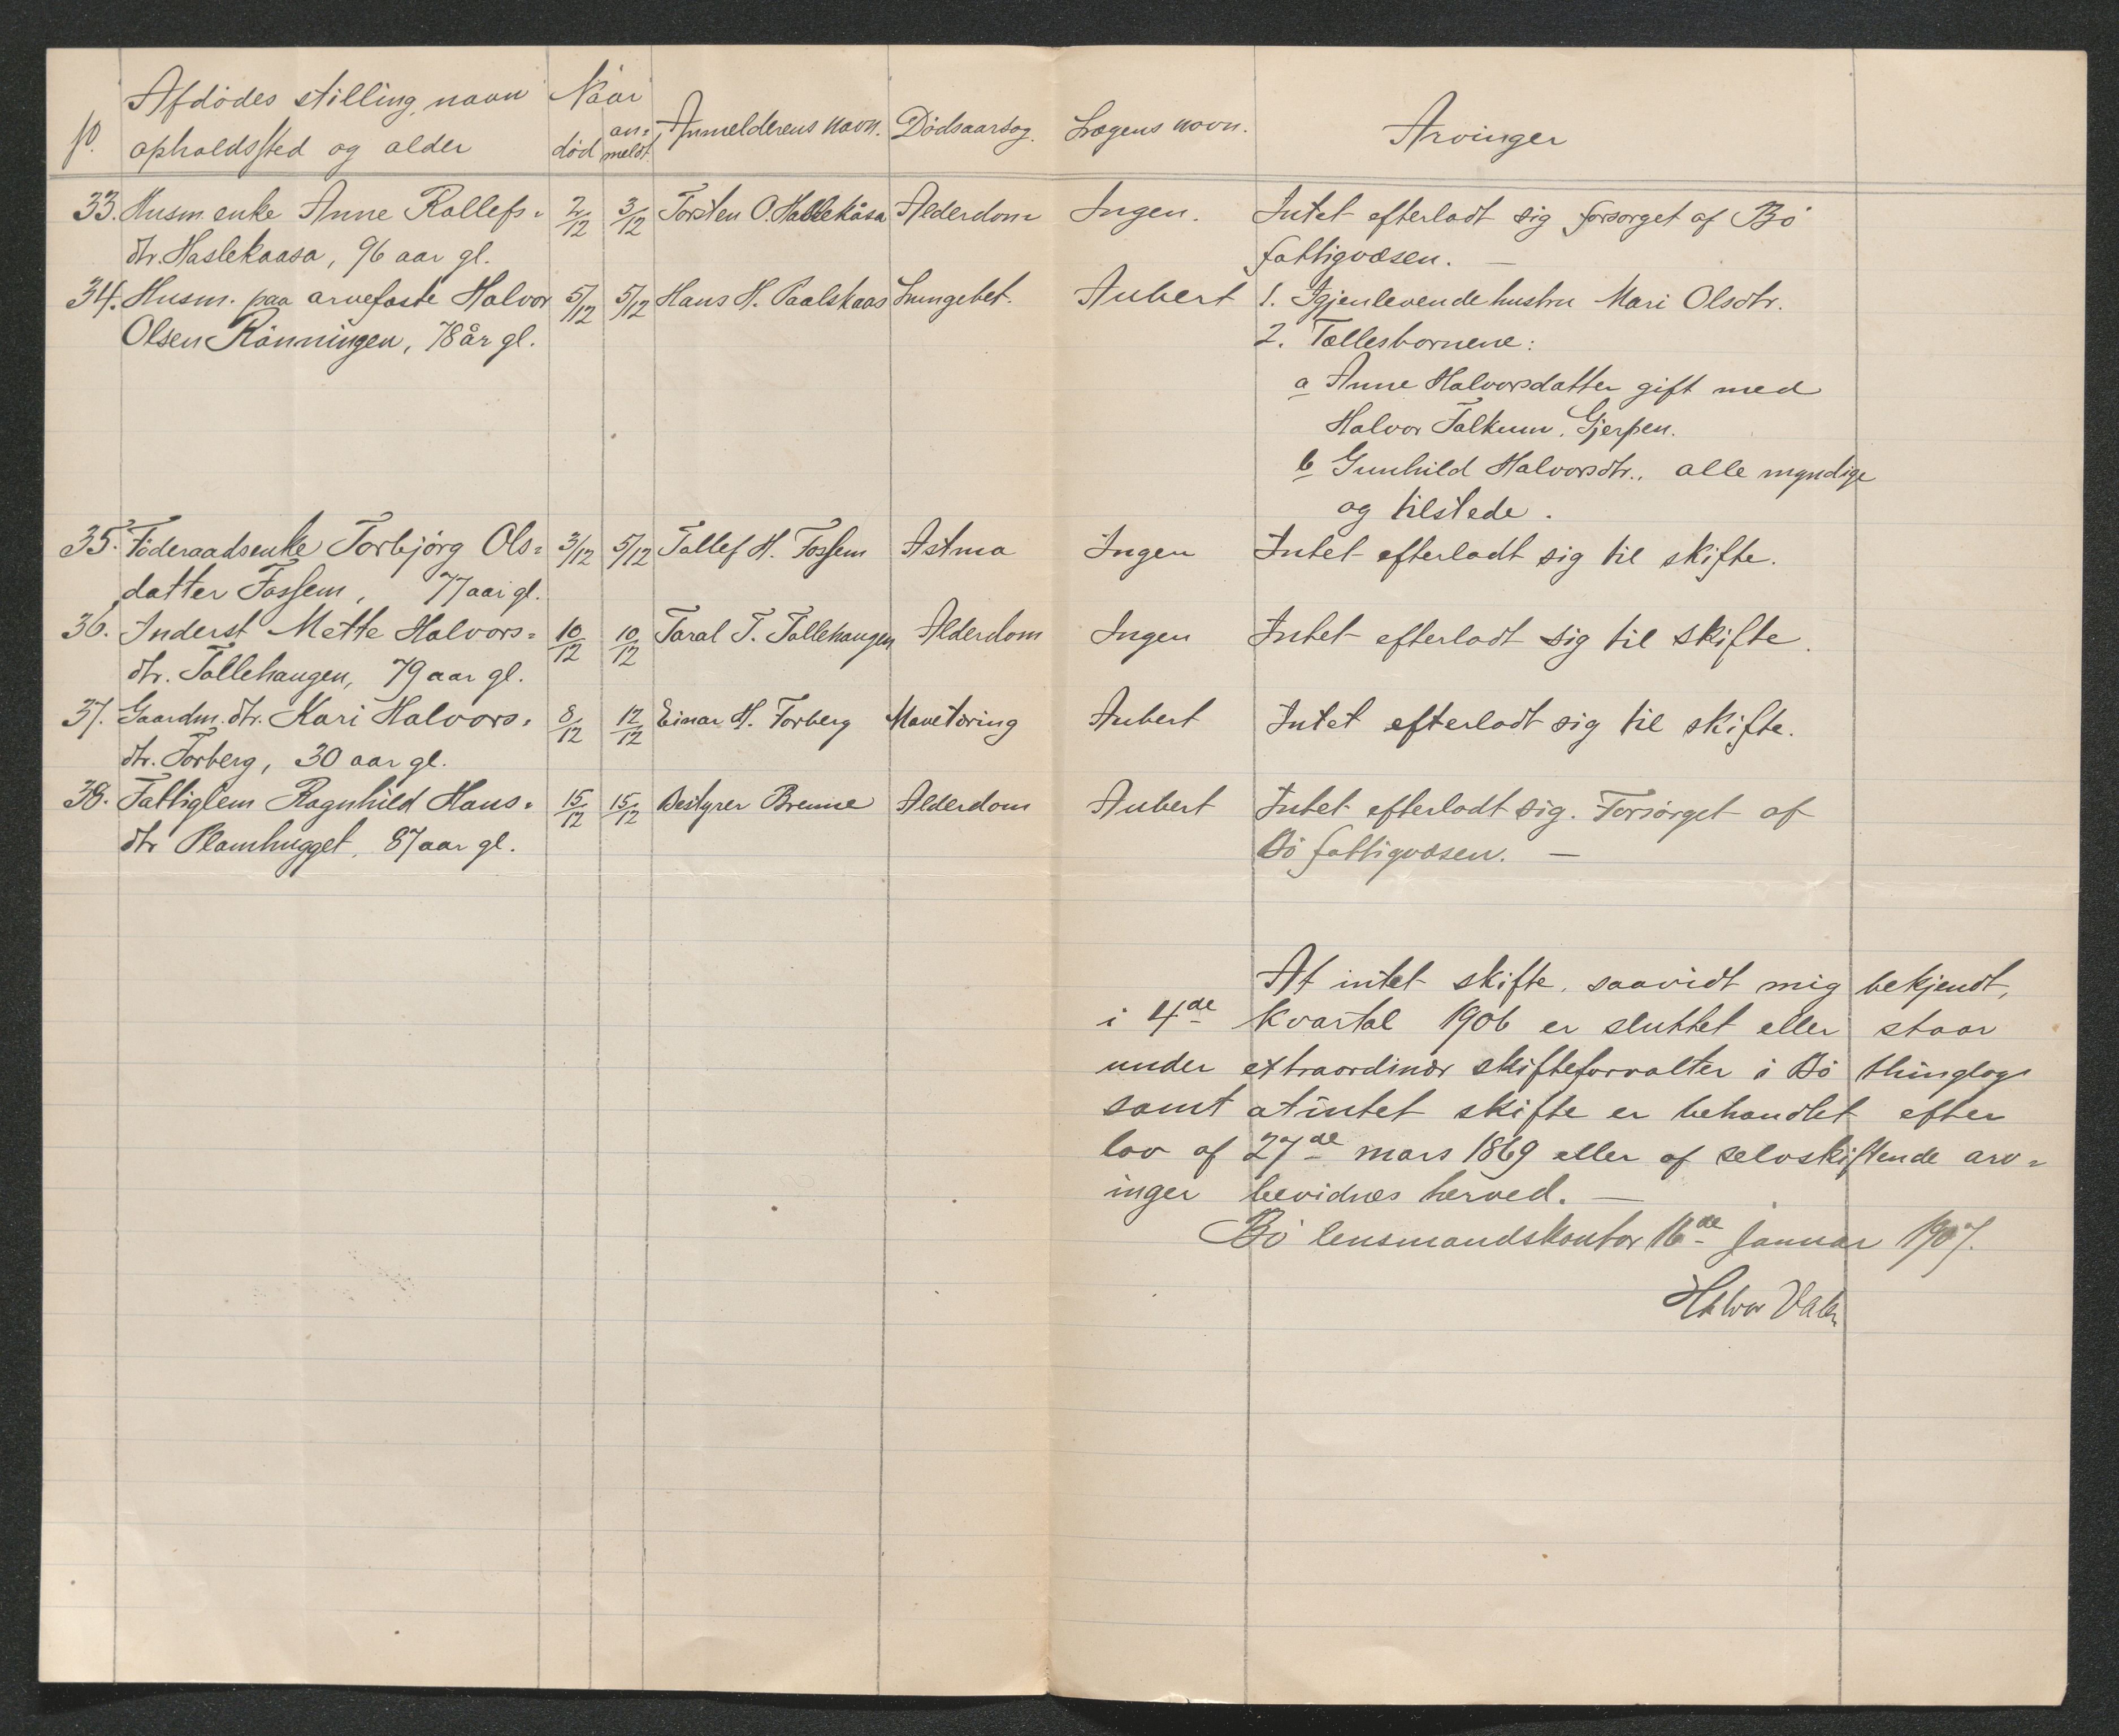 Afdødes stilling, navn Naar
No. opholdssted og alder død an= meldt Anmelderens navn. Dødsaarsag. Lægens navn. Arvinger
33. Husm. enke Anne Rollefs= 2/12 3/12 Torsten O. Haslekåsa Alderdom Ingen. Intet efterladt sig forsørget af Bø
dtr. Haslekaasa, 96 aar gl. fattigvæsen. —
34. Husm. paa arvefæste Halvor 5/12 5/12 Hans H. Paalskaas Lungebet. Aubert 1. Igjenlevende hustru Mari Olsdtr.
Olsen Rønningen, 78 år gl. 2. Fællesbørnene:
a Anne Halvorsdatter gift med
Halvor Falkum, Gjerpen.
b Gunhild Halvorsdtr., alle myndige
og tilstede.
35. Føderaadsenke Torbjørg Ols= 3/12 5/12 Tollef H. Fossem Astma Ingen Intet efterladt sig til skifte.
datter Fossem, 77 aar gl.
36. Inderst Mette Halvors= 10/12 10/12 Taral T. Tollehaugen Alderdom Ingen Intet efterladt sig til skifte.
dtr. Tollehaugen, 79 aar gl.
37. Gaardm. dtr. Kari Halvors= 8/12 12/12 Einar H. Forberg Mavetæring Aubert Intet efterladt sig til skifte.
dtr. Forberg, 30 aar gl.
38. Fattiglem Ragnhild Hans= 15/12 15/12 Bestyrer Brenne Alderdom Aubert Intet efterladt sig. Forsørget af
dtr Plamhugget, 87 aar gl. Bø fattigvæsen. —
At intet skifte, saavidt mig bekjendt,
i 4de kvartal 1906 er sluttet eller staar
under extraordinær skifteforvalter i Bø thinglag
samt at intet skifte er behandlet efter
lov af 27de mars 1869 eller af selvskiftende arv=
inger bevidnes herved. —
Bø lensmandskontor 16de januar 1907.
Halvor Valen